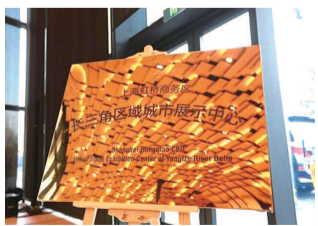 上海虹桥商务区
长三角区域城市展示中心
Shanghai Hongqiao CBD
Exhibition Center of Yangtze River Delta